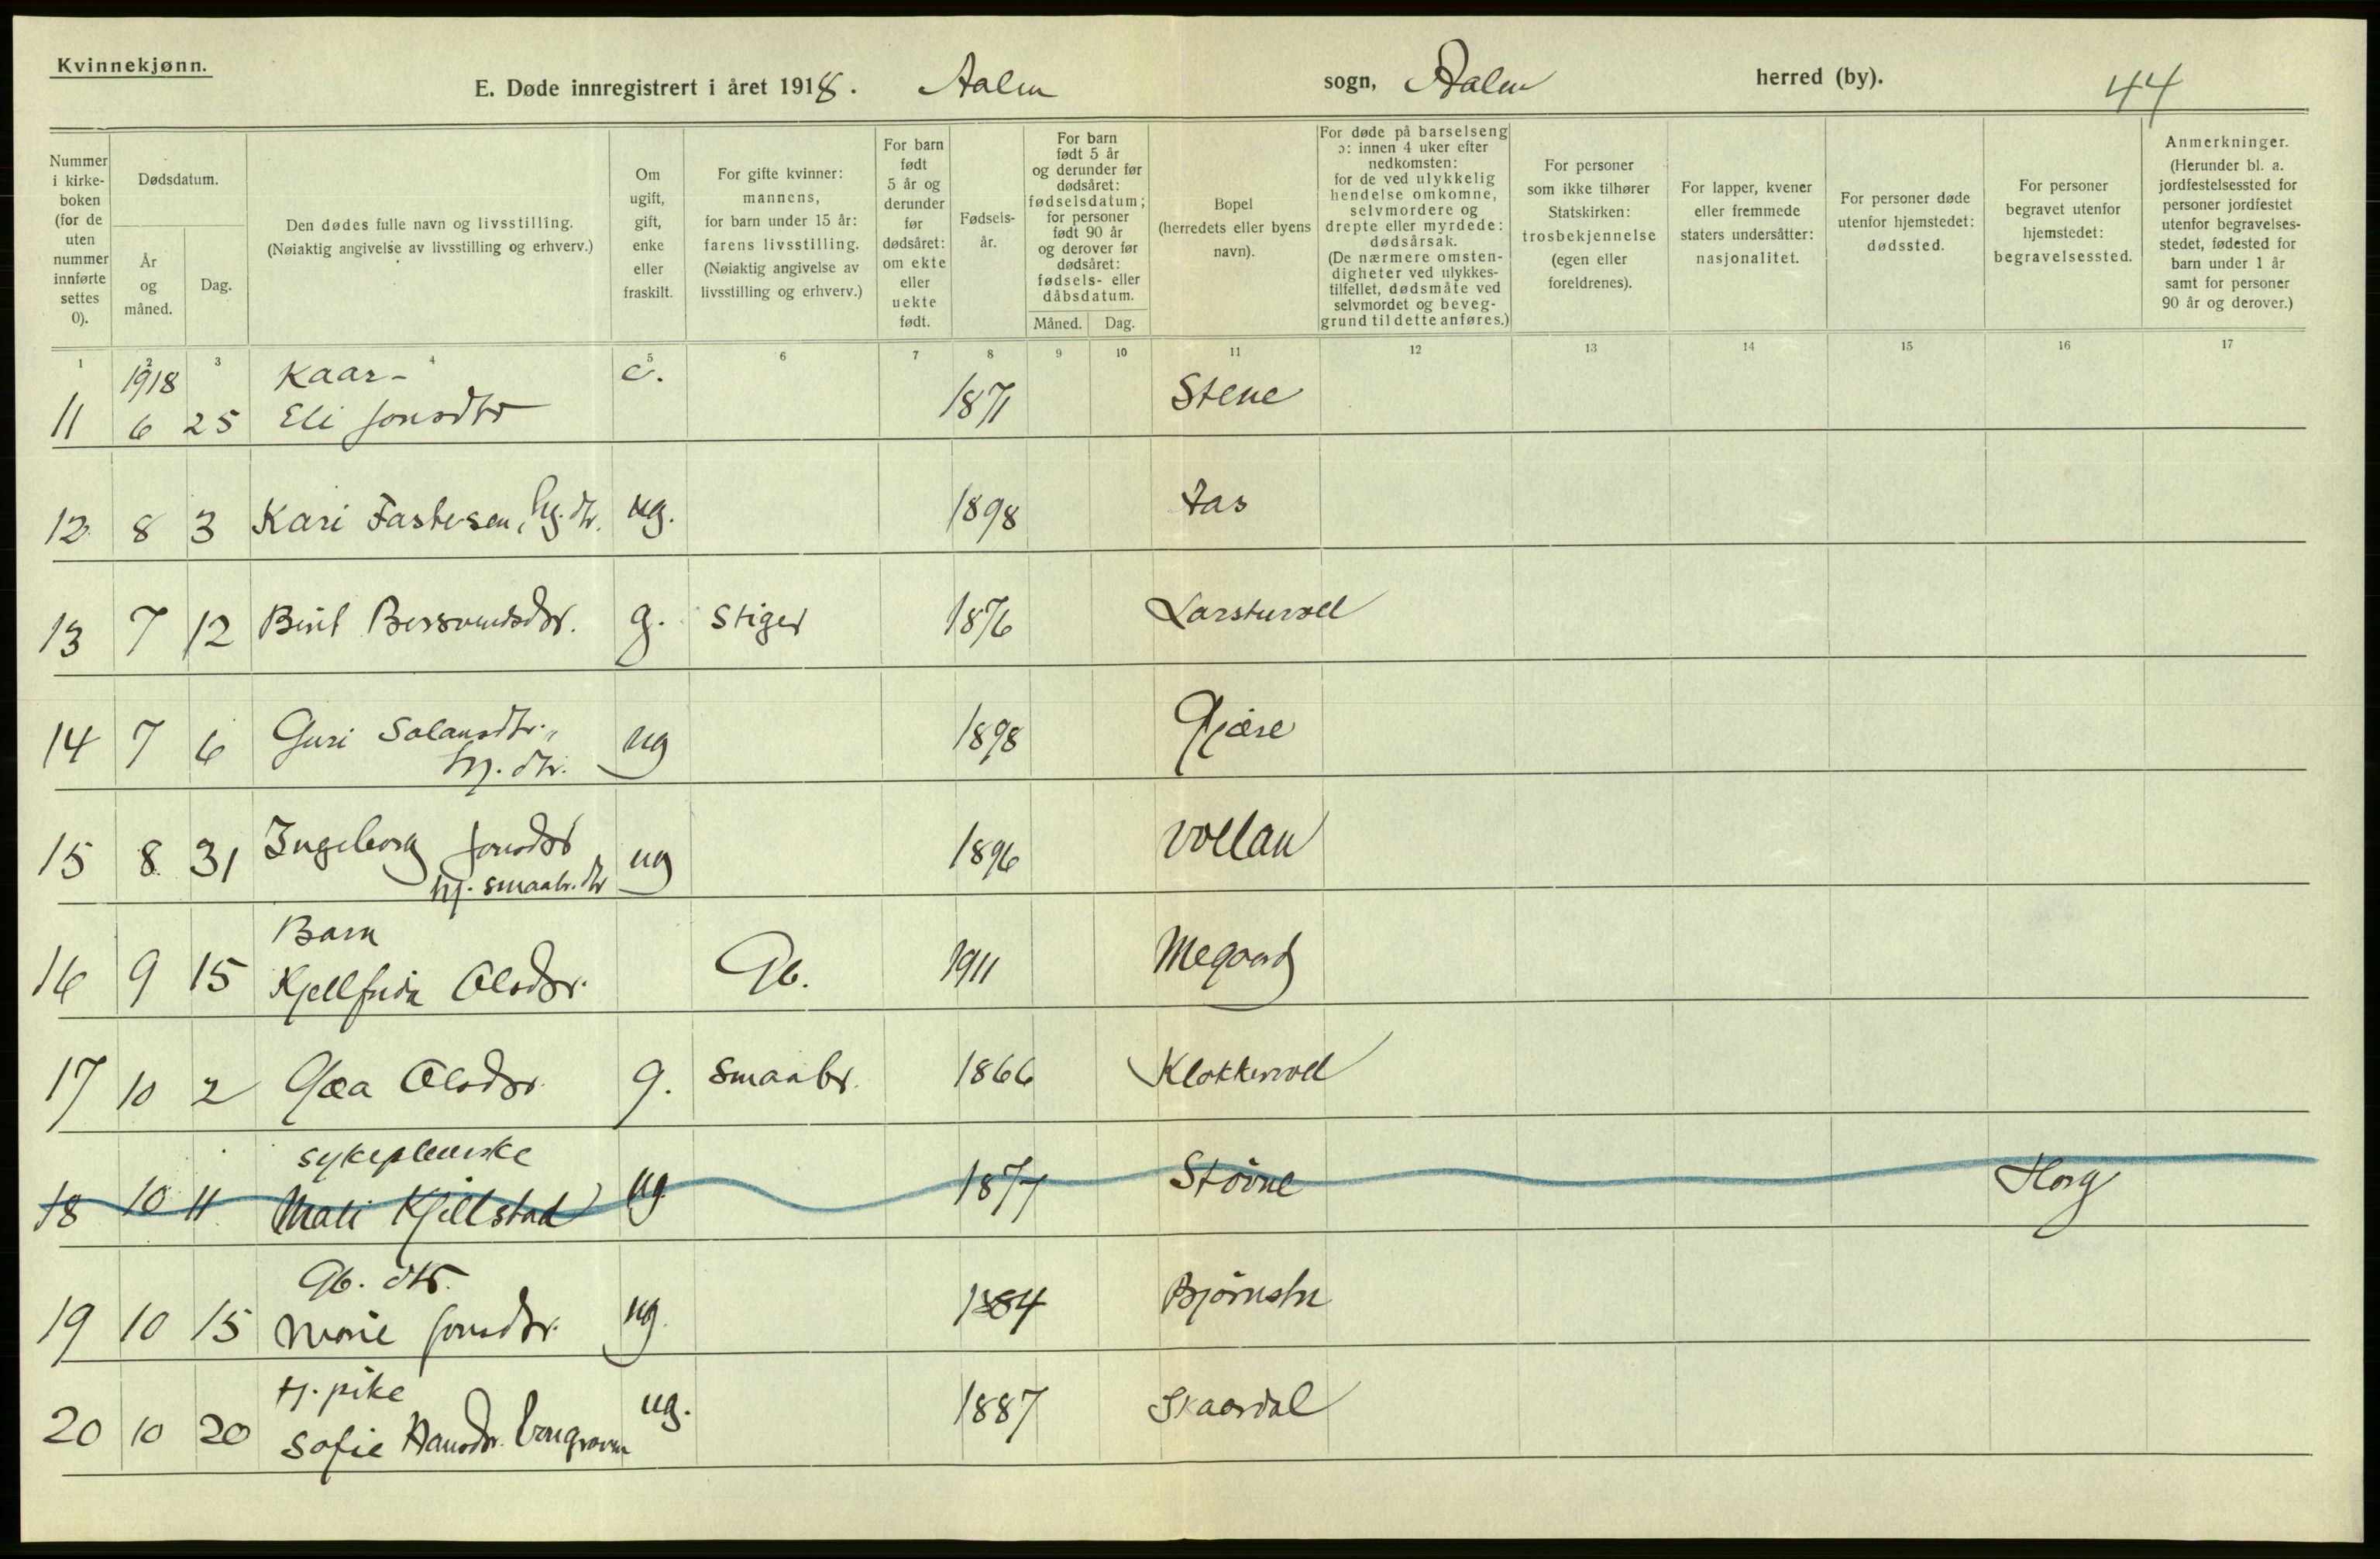 Kvinnekjønn.
E. Døde innregistrert i året 1918. Aalen sogn, Aalen herred (by). 44
Nummer i kirke-boken (for de uten nummer innførte settes 0).
Dødsdatum.
År og måned.
Dag.
Den dødes fulle navn og livsstilling.
(Nøiaktig angivelse av livsstilling og erhverv.)
Om ugift, gift, enke eller fraskilt.
For gifte kvinner: mannens, for barn under 15 år: farens livsstilling. (Nøiaktig angivelse av livsstilling og erhverv.)
For barn født 5 år og derunder før dødsåret: om ekte eller uekte født.
Fødsels-år.
For barn født 5 år og derunder før dødsåret: fødselsdatum; for personer født 90 år og derover før dødsåret: fødsels- eller dåbsdatum.
Måned. Dag.
Bopel (herredets eller byens navn).
For døde på barselseng ɔ: innen 4 uker efter nedkomsten: for de ved ulykkelig hendelse omkomne, selvmordere og drepte eller myrdede: dødsårsak. (De nærmere omsten-digheter ved ulykkes-tilfellet, dødsmåte ved selvmordet og beveg-grund til dette anføres.)
For personer som ikke tilhører Statskirken: trosbekjennelse (egen eller foreldrenes).
For lapper, kvener eller fremmede staters undersåtter: nasjonalitet.
For personer døde utenfor hjemstedet: dødssted.
For personer begravet utenfor hjemstedet: begravelsessted.
Anmerkninger. (Herunder bl. a. jordfestelsessted for personer jordfestet utenfor begravelses-stedet, fødested for barn under 1 år samt for personer 90 år og derover.)
1 2 3 4 5 6 7 8 9 10 11 12 13 14 15 16 17
1918 Kaar- e.
11 6 25 Eli Jonsdtr 1871 Stene
12 8 3 Kari Fastesen, hj. dtr. ug. 1898 Aas
13 7 12 Berit Bersvendsdtr. g. Stiger 1876 Larsturvoll
14 7 6 Guri Salamdtr., ug 1898 Gjøre
hj. dtr.
15 8 31 Ingeborg Jonsdtr ug 1896 Vollan
hj. smaabr. dtr
Barn
16 9 15 Kjellfrida Olsdtr. Gb. 1911 Megaard
17 10 2 Gøa Olsdtr. g. Smaabr. 1866 Klokkervoll
sykepleierske
18 10 11 Mali Kjellstad ug 1877 Støvne Horg
Gb. dtr.
19 10 15 Marie Jonsdtr. ug. 1884 Bjørnstu
Hj. pike
20 10 20 Sofie Hansdtr. ug. 1887 Skaardal